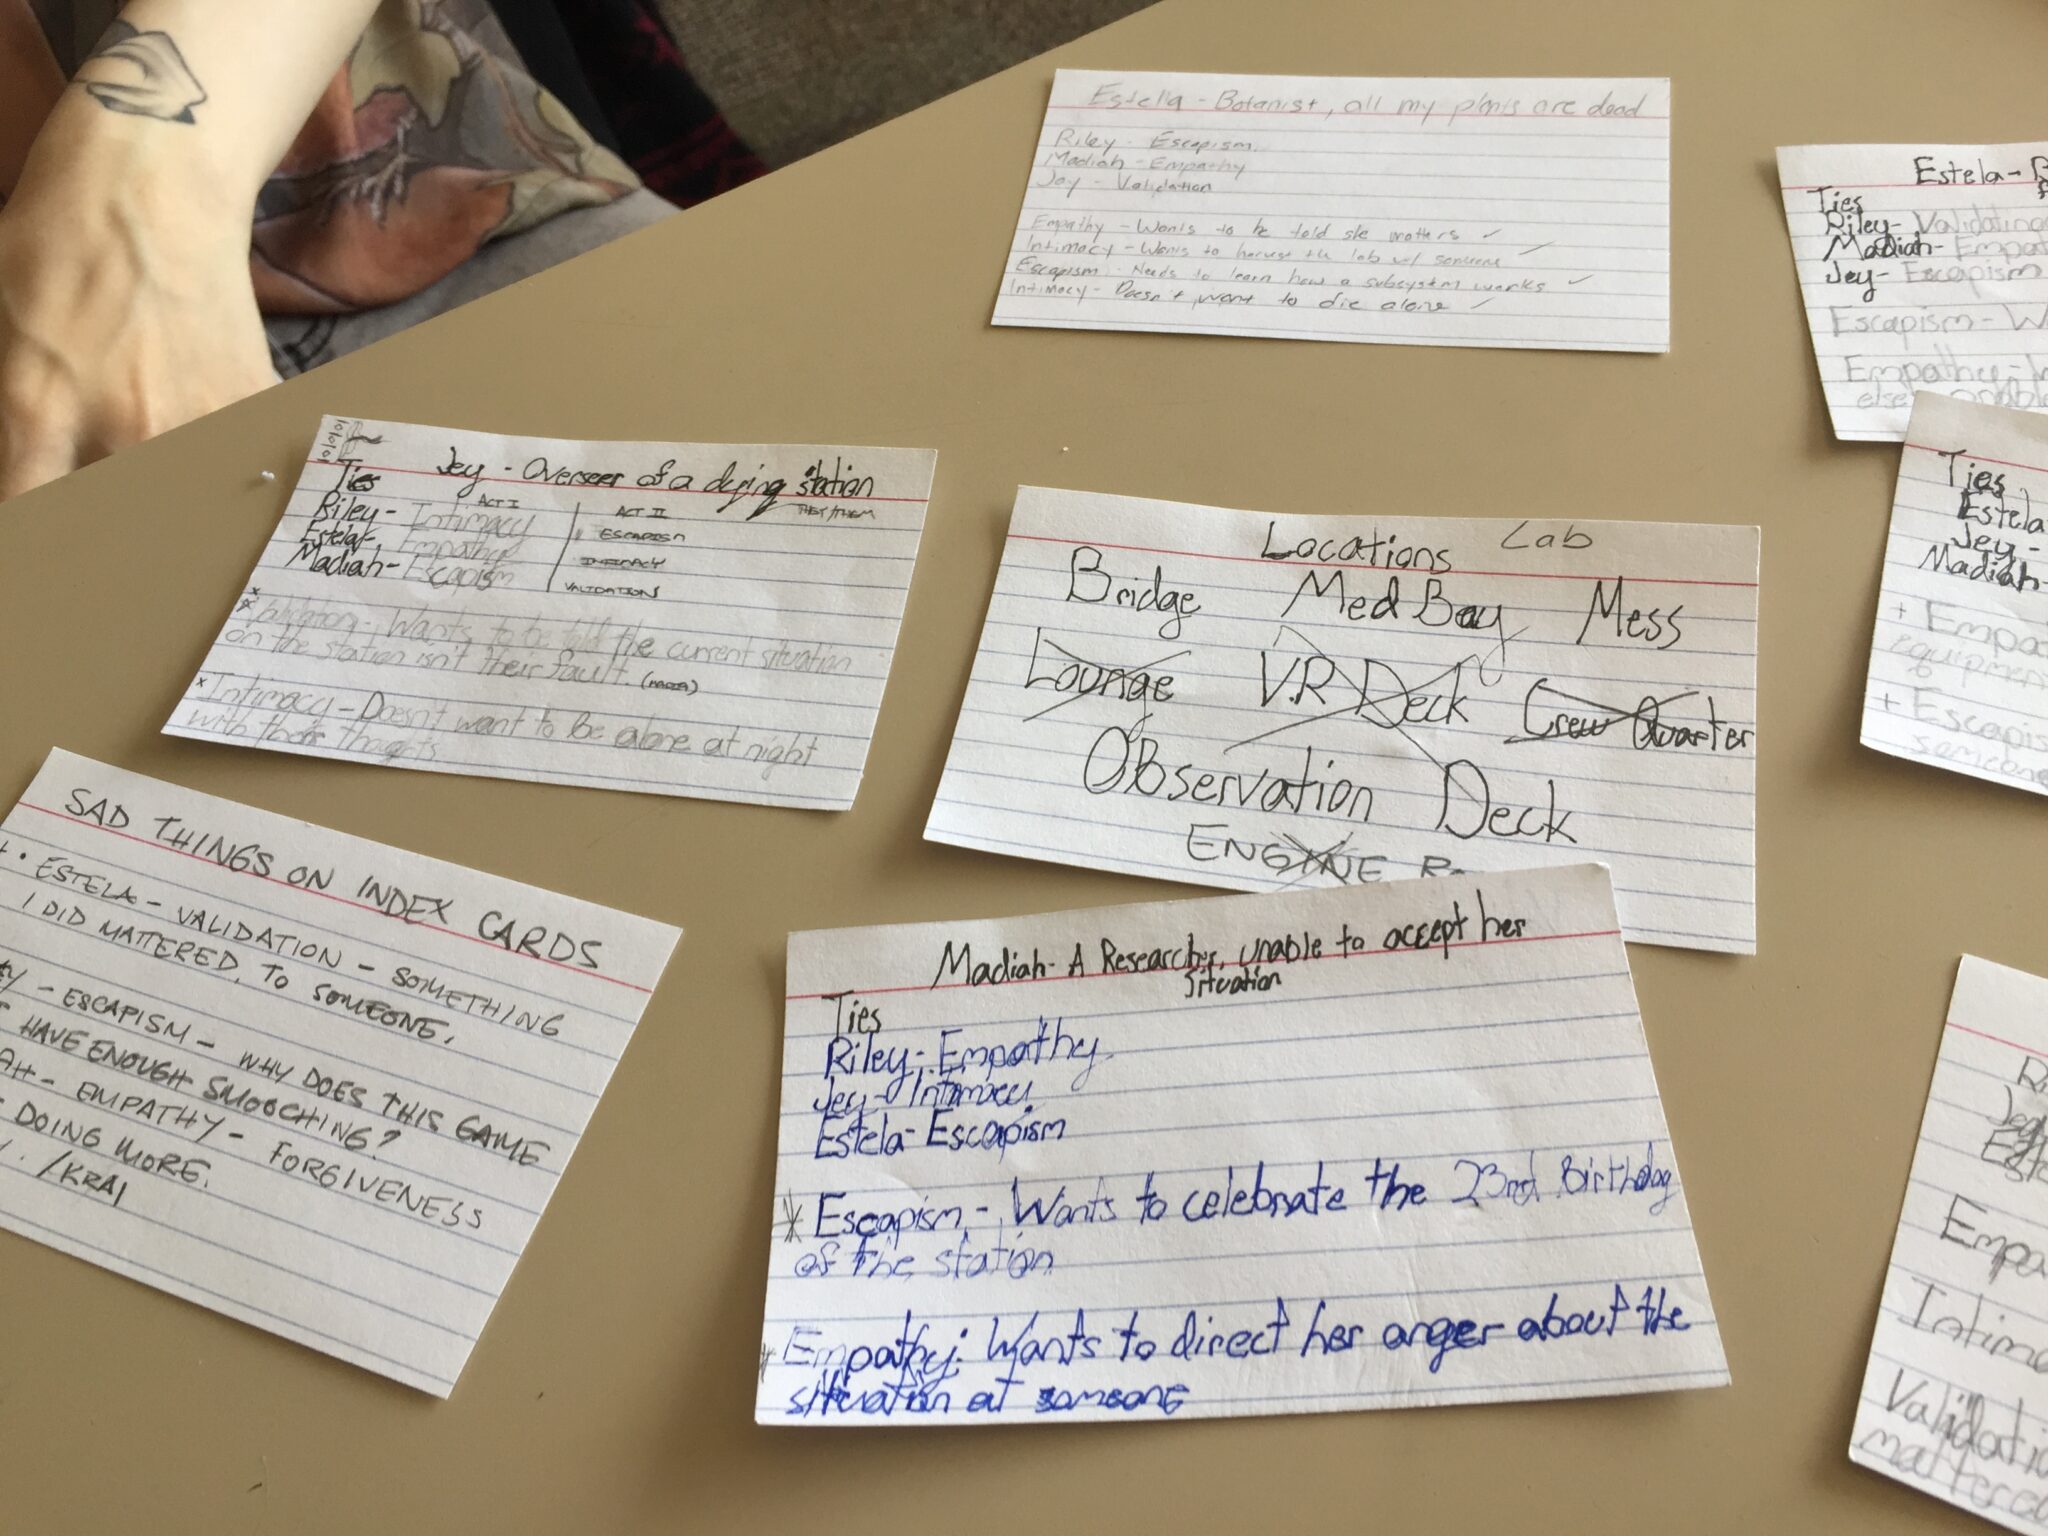 Estella - Botanist, all my plants are dead
Riley - Escapism
Madiah - Empathy
Jay - Validation
Empathy - Wants to be told she matters ✓
Intimacy - Wants to harvest the lab w/ someone ✓
Escapism - Needs to learn how a subsystem works ✓
Intimacy - Doesn't want to die alone ✓
Estela -
Ties
Riley - Validation
Madiah -
Jey - Escapism
Escapism -
Empathy -
else
Jey - Overseer of a dying station
THEY/THEM
Ties
ACT I
ACT II
Riley - Intimacy
ESCAPISM
Estela - Empathy
INTIMACY
Madiah - Escapism
VALIDATION
* Validation - Wants to be told the current situation
on the station isn't their fault.
* Intimacy - Doesn't want to be alone at night
with their thoughts
Locations Lab
Bridge Med Bay Mess
Lounge V.R Deck Crew Quarter
Observation Deck
ENGINE
Ties
Estela
Jey -
Madiah -
+
+
SAD THINGS ON INDEX CARDS
• ESTELA - VALIDATION - SOMETHING
I DID MATTERED, TO SOMEONE.
- ESCAPISM - WHY DOES THIS GAME
HAVE ENOUGH SMOOCHING?
- EMPATHY - FORGIVENESS
DOING MORE.
/KRAI
Madiah - A Researcher, unable to accept her
situation
Ties
Riley - Empathy
Jey - Intimacy
Estela - Escapism
* Escapism - Wants to celebrate the 23rd Birthday
of the station
* Empathy: Wants to direct her anger about the
situation at someone